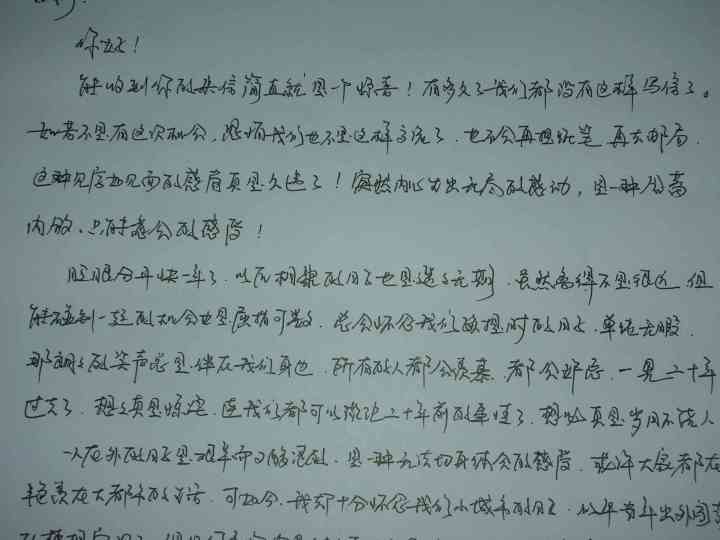 你好！
能收到你的来信简直就是一个惊喜！有多久了我们都没有这样写信了。
如若不是有这次机会，恐怕我们也不是这样交流了，也不会再想纸笔，再去邮局，
这种见字如见面的感有真是久违了！突然内心为出无尽的感动，是一种含蓄
内敛，只能意会的感受！
眨眼分开快一年了，以后相聚的日子也是遥遥无期，虽然离得不是很远 但
能碰到一起的机会也是屈指可数，总会怀念我们的时的日子，单纯无暇，
那朗朗的笑声总是伴在我们身边，所有的人都会羡慕，都会，一晃二十年
过去了，想想真是惊诧，连我们都可以谈论二十年前的事情了，想必真是岁月不饶人
一人在外的日子是艰辛而又酸涩的，是一种无法切身体会的感受，或许大家都在
羡在大都市的生活，可如今，我却十分怀念我们小城市的日子，以年前年出外闯